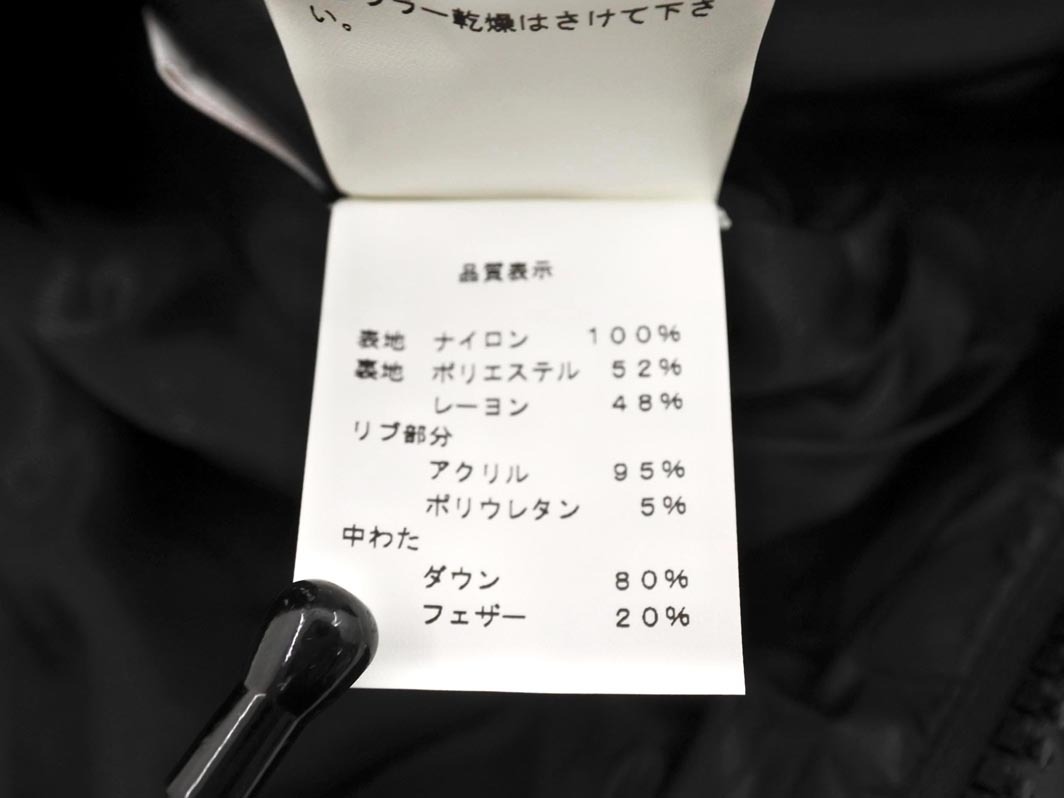 ンブラー乾燥はさけて下さ
い。
品質表示
表地 ナイロン 100%
裏地 ポリエステル 52%
レーヨン 48%
リブ部分
アクリル 95%
ポリウレタン 5%
中わた
ダウン 80%
フェザー 20%